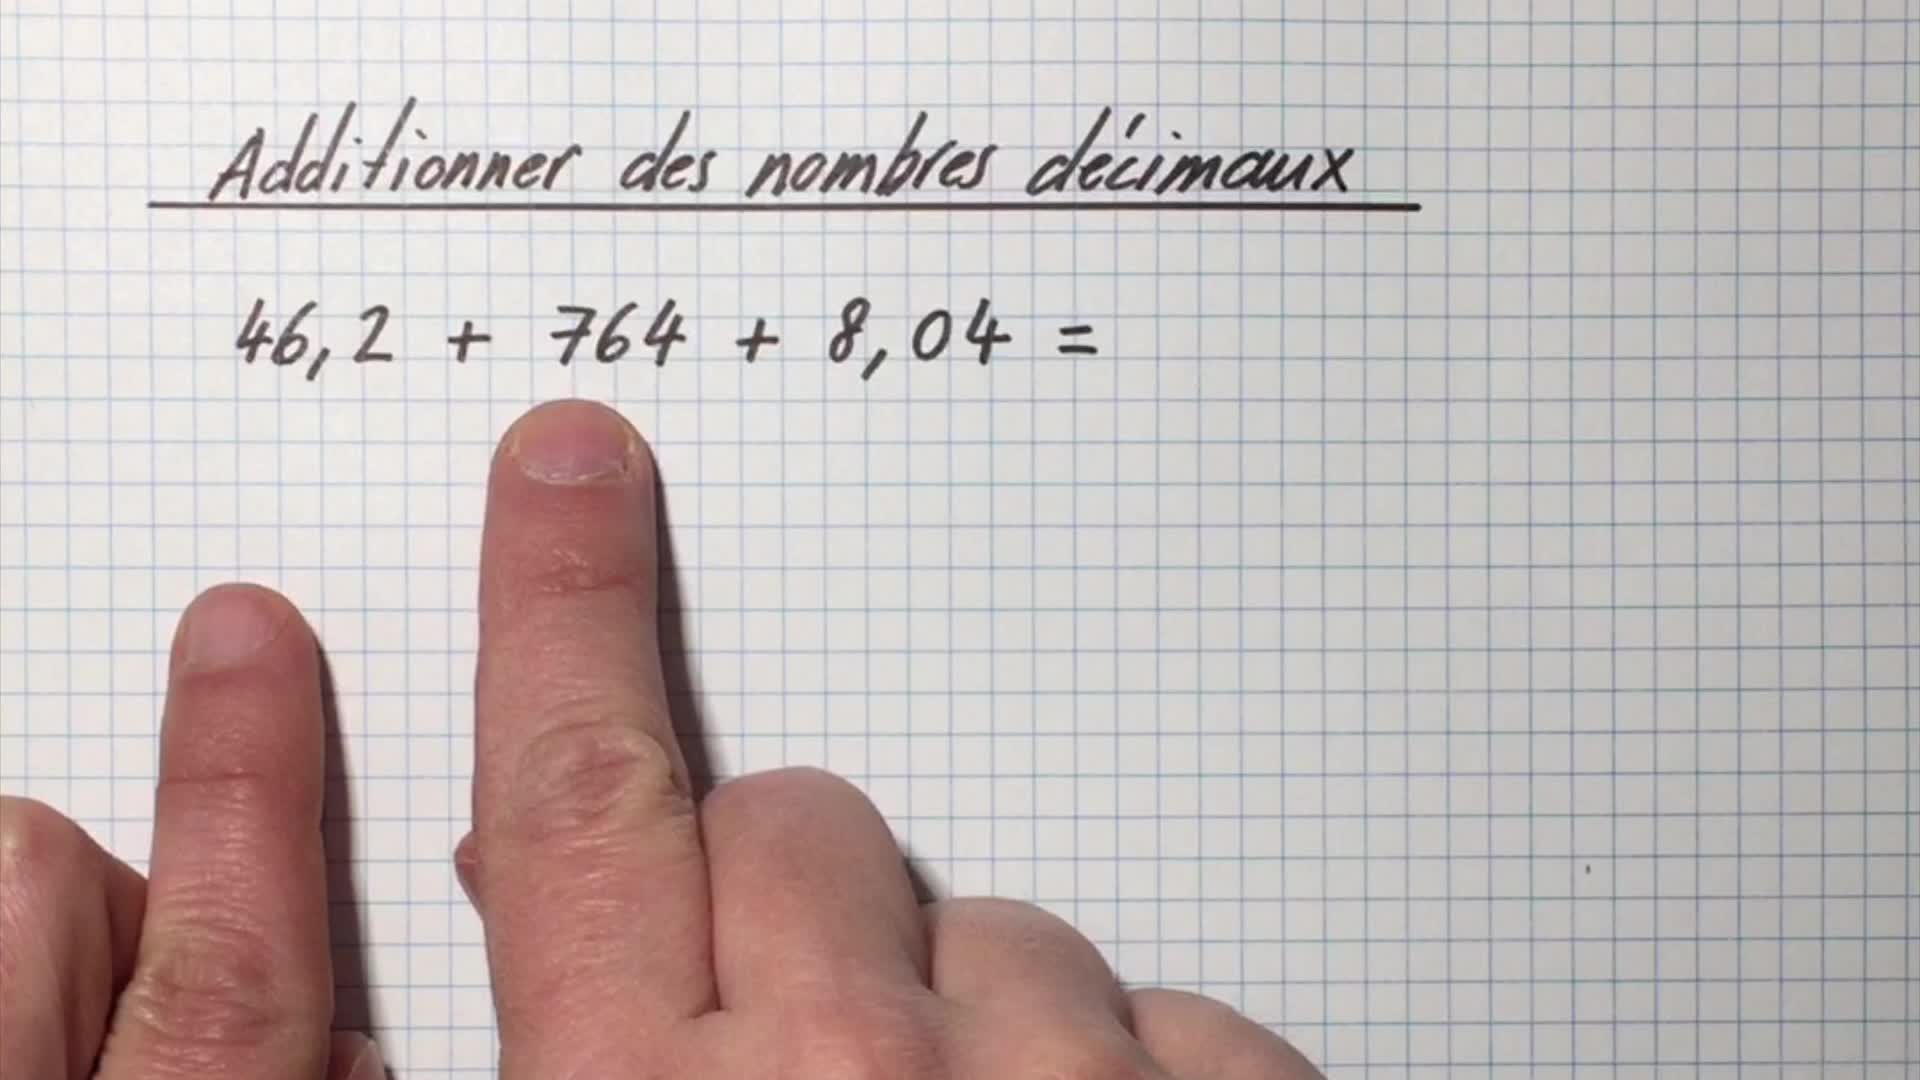 Additionner des nombres décimaux
46,2 + 764 + 8,04 =